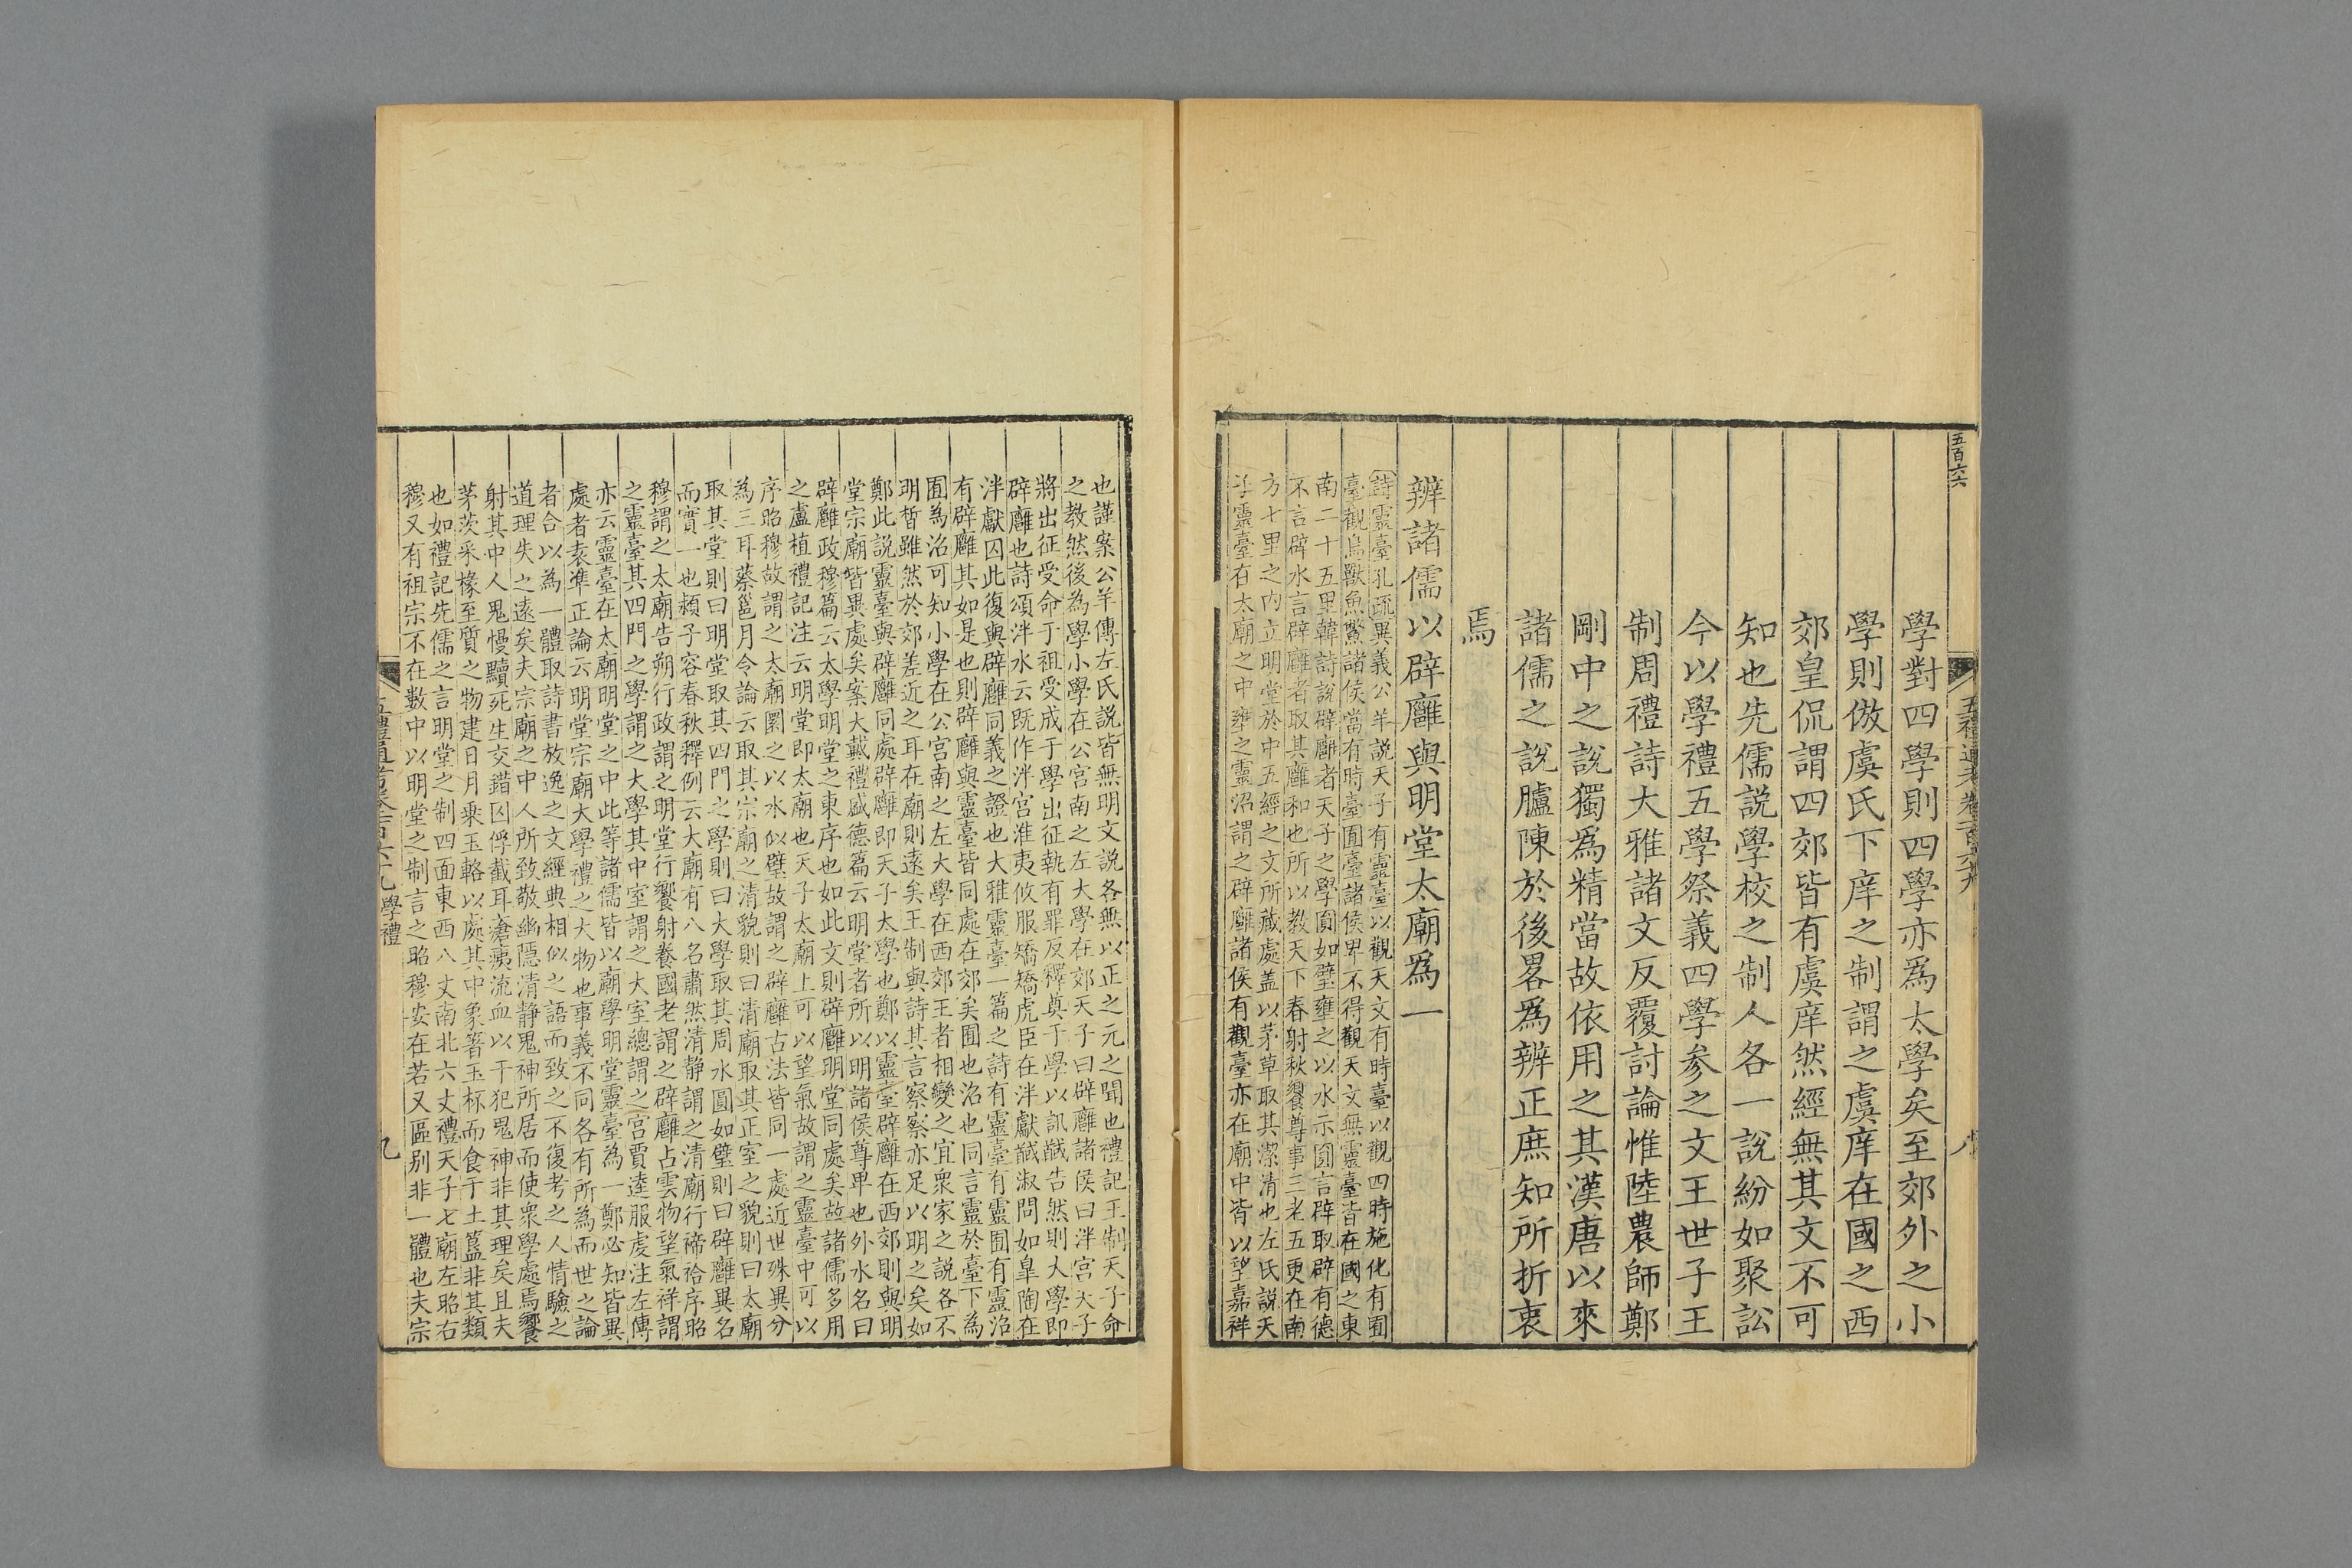 五百六六
五禮通考卷一百六十九
學對四學則四學亦爲太學矣至郊外之小
學則倣虞氏下庠之制謂之虞庠在國之西
郊皇侃謂四郊皆有虞庠然經無其文不可
知也先儒説學校之制人各一說紛如聚訟
今以學禮五學祭義四學参之文王世子王
制周禮詩大雅諸文反覆討論惟陸農師鄭
剛中之說獨爲精當故依用之其漢唐以來
諸儒之說臚陳於後畧爲辨正庶知所折衷
焉
辨諸儒以辟廱與明堂太廟爲一
詩靈臺孔疏異義公羊説天子有靈臺以觀天文有時臺以觀四時施化有囿
臺觀鳥獸魚鱉諸侯當有時臺囿臺諸侯卑不得觀天文無靈臺皆在國之東
南二十五里韓詩說辟廱者天子之學圓如璧壅之以水示圓言辟取辟有德
不言辟水言辟廱者取其廱和也所以教天下春射秋饗尊事三老五更在南
方七里之内立明堂於中五經之文所藏處盖以茅草取其潔清也左氏説天
子靈臺在太廟之中壅之靈沼謂之辟廱諸侯有觀臺亦在廟中皆以望嘉祥
也謹案公羊傳左氏説皆無明文説各無以正之元之聞也禮記王制天子命
之教然後為學小學在公宮南之左大學在郊天子曰辟廱諸侯曰泮宮天子
將出征受命于祖受成于學出征執有罪反釋奠于學以訊馘告然則大學即
辟廱也詩頌泮水云既作泮宮淮夷攸服矯矯虎臣在泮獻馘淑問如皐陶在
泮獻囚此復與辟廱同義之證也大雅靈臺一篇之詩有靈臺有靈囿有靈沼
有辟廱其如是也則辟廱與靈臺皆同處在郊矣囿也沼也同言靈於臺下為
囿為沼可知小學在公宮南之左大學在西郊王者相變之宜衆家之説各不
明晳雖然於郊差近之耳在廟則遠矣王制與詩其言察察亦足以明之矣如
鄭此説靈臺與辟廱同處辟廱即天子太學也鄭以靈臺辟廱在西郊則與明
堂宗廟皆異處矣案大戴禮盛德篇云明堂者所以明諸侯尊卑也外水名曰
辟廱政穆篇云太學明堂之東序也如此文則辟廱明堂同處矣故諸儒多用
之盧植禮記注云明堂即太廟也天子太廟上可以望氣故謂之靈臺中可以
序昭穆故謂之太廟圜之以水似璧故謂之辟廱古法皆同一處近世殊異分
為三耳蔡邕月令論云取其宗廟之清貌則曰清廟取其正室之貌則曰太廟
取其堂則曰明堂取其四門之學則曰大學取其周水圓如璧則曰辟廱異名
而實一也潁子容春秋釋例云大廟有八名肅然清静謂之清廟行禘祫序昭
穆謂之太廟告朔行政謂之明堂行饗射養國老謂之辟廱占雲物望氣祥謂
之靈臺其四門之學謂之大學其中室謂之大室總謂之宮賈逵服虔注左傳
亦云靈臺在太廟明堂之中此等諸儒皆以廟學明堂靈臺為一鄭必知皆異
處者袁準正論云明堂宗廟大學禮之大物也事義不同各有所為而世之論
者合以為一體取詩書放逸之文經典相似之語而致之不復考之人情驗之
道理失之遠矣夫宗廟之中人所致敬幽隱清静鬼神所居而使衆學處焉饗
射其中人鬼慢黷死生交錯囚俘截耳瘡痍流血以干犯鬼神非其理矣且夫
茅茨采椽至質之物建日月乗玉輅以處其中象箸玉杯而食于土簋非其類
也如禮記先儒之言明堂之制四面東西八丈南北六丈禮天子七廟左昭右
穆又有祖宗不在數中以明堂之制言之昭穆安在若又區别非一體也夫宗
五禮通考卷一百六十九 學禮 九